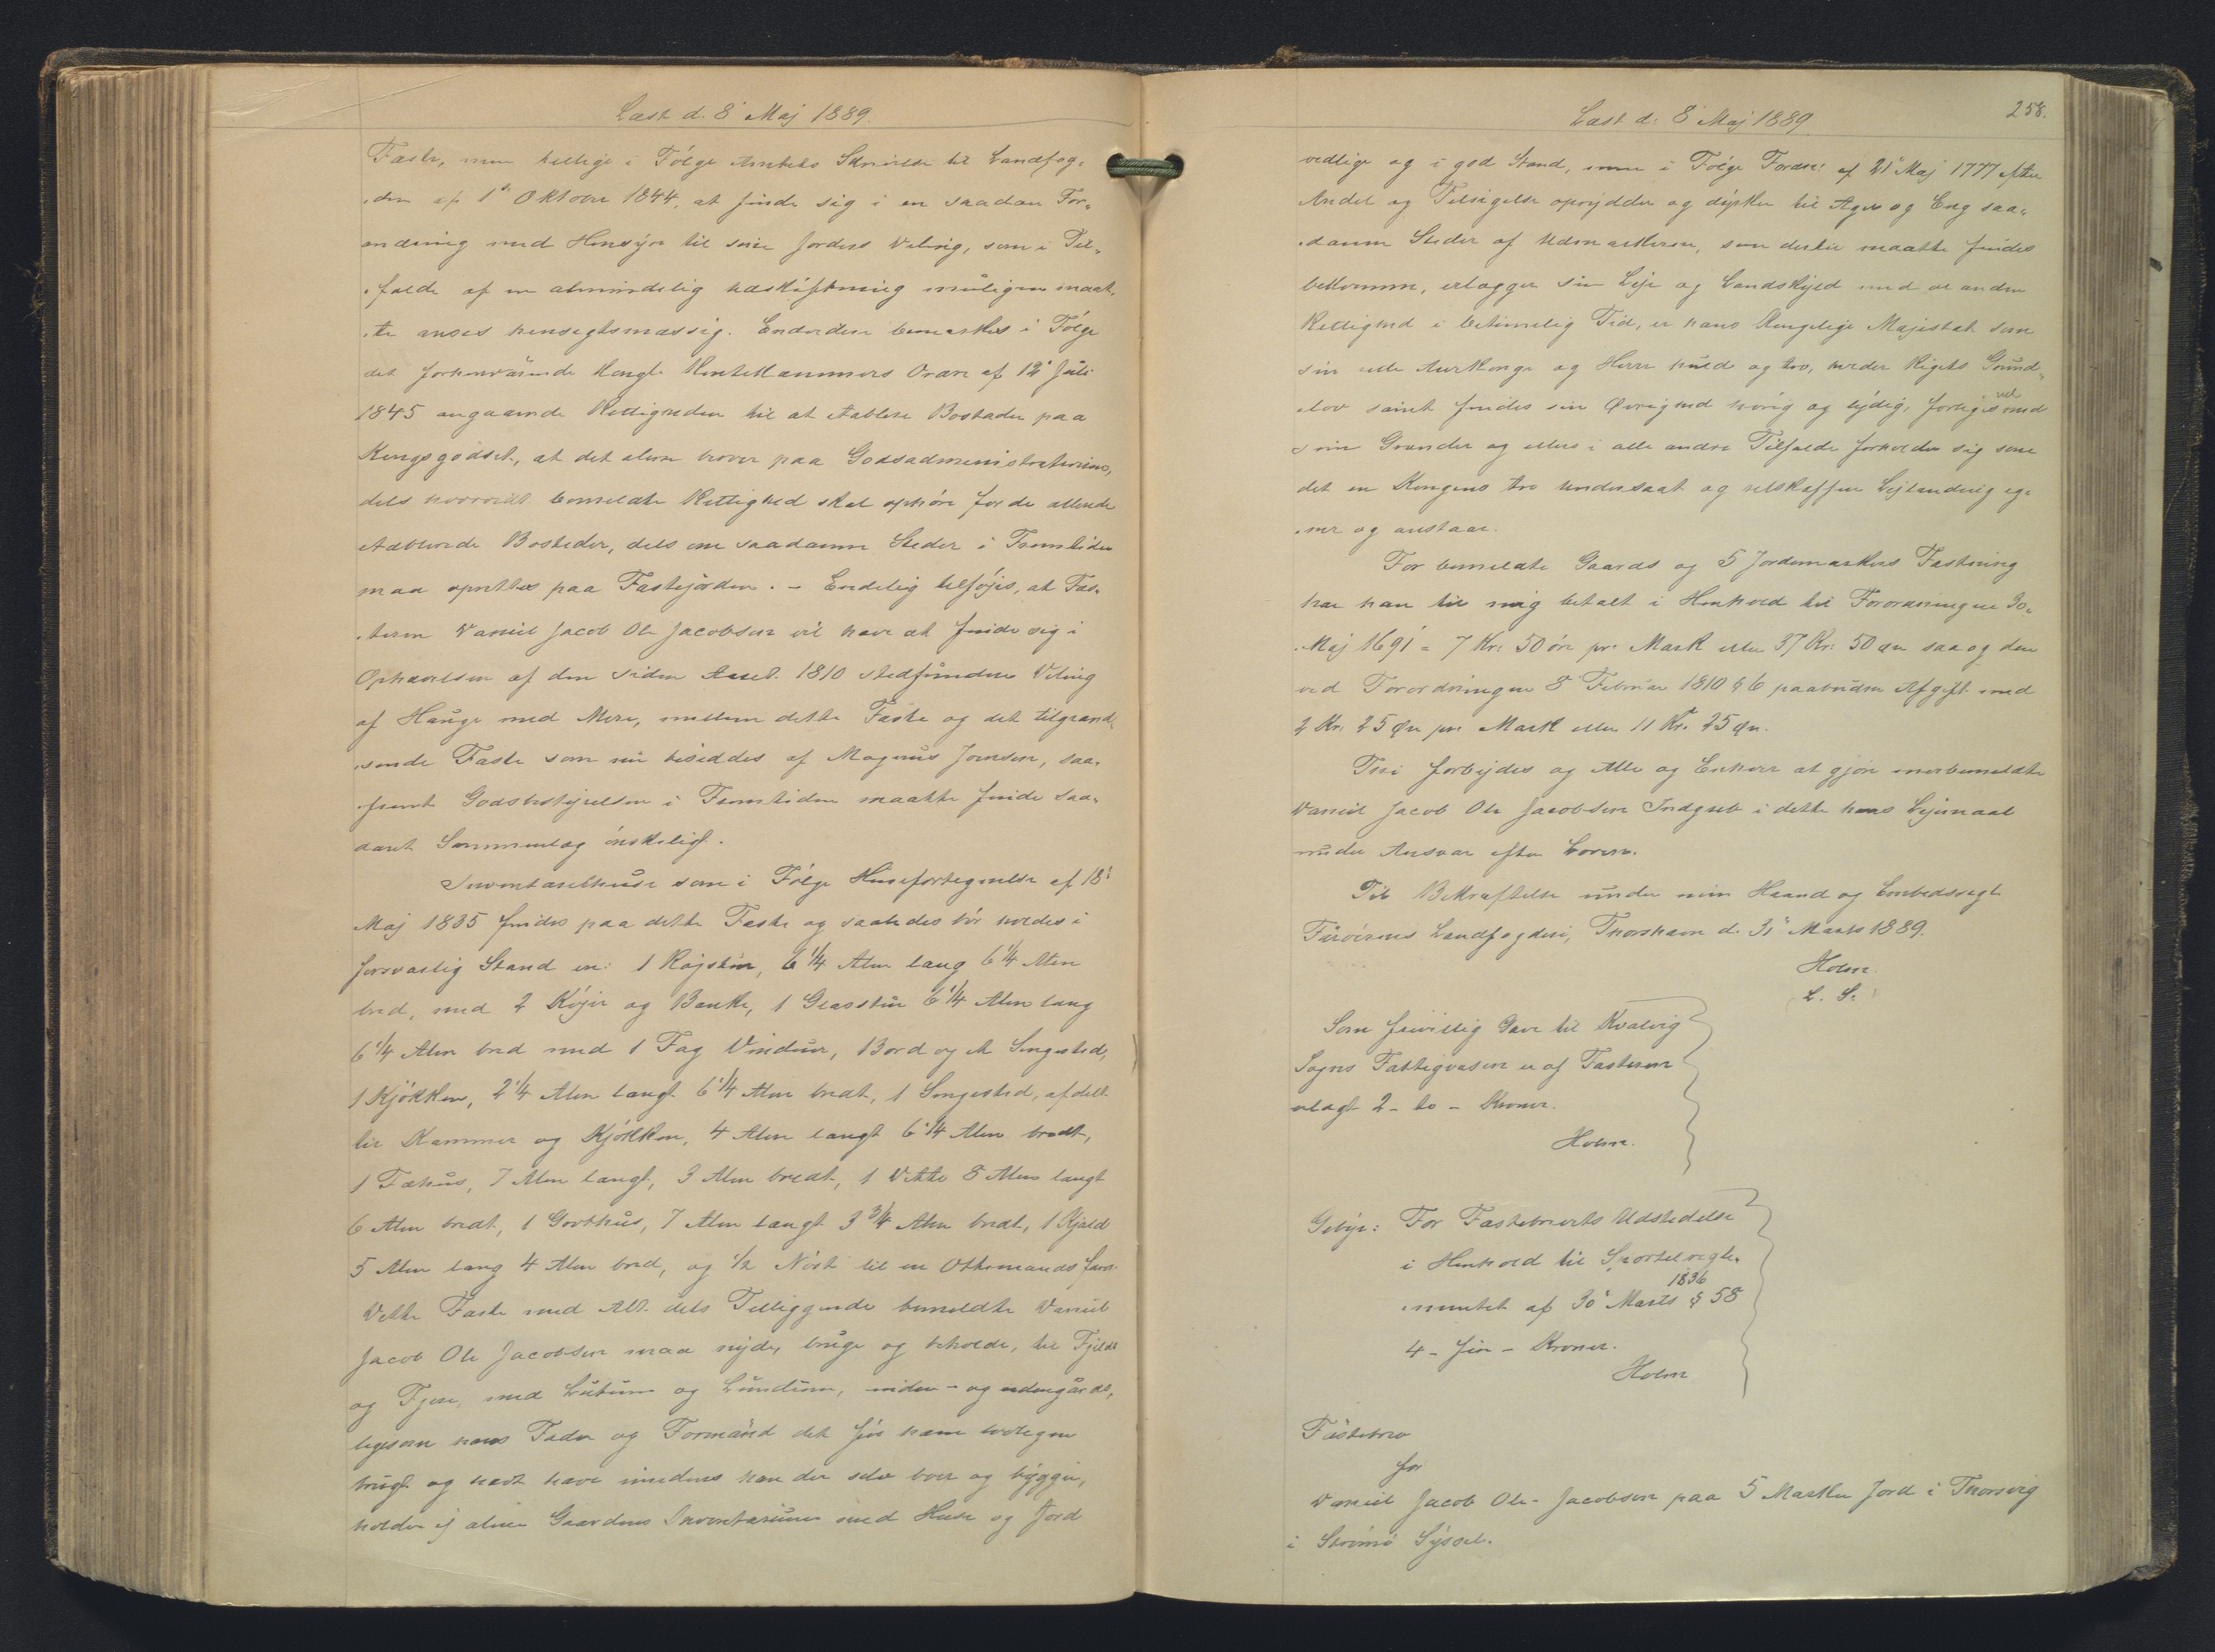 Læst d. 8' Maj 1889.
Fæste, men tillige i Følge Amtets Skrivelse til Landfog-
den af 1' Oktober 1844, at finde sig i en saadan For-
andring med Hensyn til sine Jorders Veling, som i Til-
fælde af en almindelig Udskiftning muligen maat-
te anses hensigtsmæssig. Endvidere bemærkes i Følge
det forhenværende Kongl. Rentekammers Ordre af 12' Juli
1845 angaaende Rettigheden til at etablere Bosteder paa
Kongsgodset, at det alene beror paa Godsadministrationen,
dels hvorvidt bemeldte Rettighed skal ophøre for de allerede
etablerede Bosteder, dels om saadanne Steder i Fremtiden
maa oprettes paa Fæstejorden. – Endelig tilføjes, at Fæs-
teren Daniel Jacob Ole Jacobsen vil have at finde sig i
Ophævelsen af den siden Aaret 1810 stedfundne Veling
af Hauge med Mere, mellem dette Fæste og det tilgrænd-
sende Fæste som nu besiddes af Magnus Joensen, saa-
fremt Godsbestyrelsen i Fremtiden maatte finde saa-
dant Sammenlæg ønskeligt.
Inventariehuse som i Følge Husefortegnelse af 18'
Maj 1835 findes paa dette Fæste og saaledes bør holdes i
forsvarlig Stand ere: 1 Røgstue, 6 1/4 Alen lang 6 1/4 Alen
bred, med 2 Køjer og Bænke, 1 Glasstue 6 1/4 Alen lang
6 1/4 Alen bred med 1 Fag Vinduer, Bord og et Sengested,
1 Kjøkken, 2 1/4 Alen langt 6 1/4 Alen bredt, 1 Sengested, afdelt
til Kammer og Kjøkken, 4 Alen langt 6 1/4 Alen bredt,
1 Fæhus, 7 Alen langt, 3 Alen bredt, 1 Ditto 8 Alen langt
6 Alen bredt, 1 Grothus, 7 Alen langt 3 3/4 Alen bredt, 1 Kjald
5 Alen lang 4 Alen bred, og 1/2 Nøst til en Ottemands far.
Dette Fæste med Alt dets Tilliggende bemeldte Daniel
Jacob Ole Jacobsen maa nyde, bruge og beholde, til Fjelds
og Fjere, med Lutum og Lundum, inden- og udengårds,
ligesom hans Fader og Formænd det før ham lovligen
brugt og havt have imedens han der selv boer og bygger,
holder ej alene Gaardens Inventarium med Huse og Jord
Læst d. 8' Maj 1889.
258.
vedlige og i god Stand, men i Følge Fordn. af 21' Maj 1777 efter
Andel og Tilsigelse oprydder og dyrker til Ager og Eng saa-
danne Steder af Udmarkerne, som dertil maatte findes
bekvemme, erlægger sin Leje og Landskyld med al anden
Rettighed i betimelig Tid, er hans Kongelige Majestæt som
sin rette Arvekonge og Herre huld og tro, under Rigets Grund-
lov samt findes sin Øvrighed hørig og lydig, forliges vel med
sine Grander og ellers i alle andre Tilfælde forholder sig som
det en Kongens tro Undersaat og retskaffen Lejlænding eg-
ner og anstaar.
For bemeldte Gaards og 5 Jordemarkers Fæstning
har han til mig betalt i Henhold til Forordningen 30.
Maj 1691 = 7 Kr. 50 øre pr. Mark eller 37 Kr. 50 Øre saa og den
ved Forordningen 8' Februar 1810 § 6 paabudne Afgift med
2 Kr. 25 Øre pr. Mark eller 11 Kr. 25 Øre.
Thi forbydes og Alle og Enhver at gjøre merbemeldte
Daniel Jacob Ole Jacobsen Indgreb i dette hans Lejemaal
under Ansvar efter Loven.
Til Bekræftelse under min Haand og Embedssegl.
Færøernes Landfogderi, Thorshavn d. 31' Marts 1889.
Holm.
L. S.
Som frivillig Gave til Kvalvig
Sogns Fattigvæsen er af Fæsteren
erlagt 2 - to - Kroner.
Holm.
Gebyr: For Fæstebrevets Udstedelse
i Henhold til Sportelregle-
mentet af 30' Marts 1836 § 58
4 - fire - Kroner.
Holm
Fæstebrev
for
Daniel Jacob Ole Jacobsen paa 5 Marker Jord i Thorsvig
i Strømø Syssel.